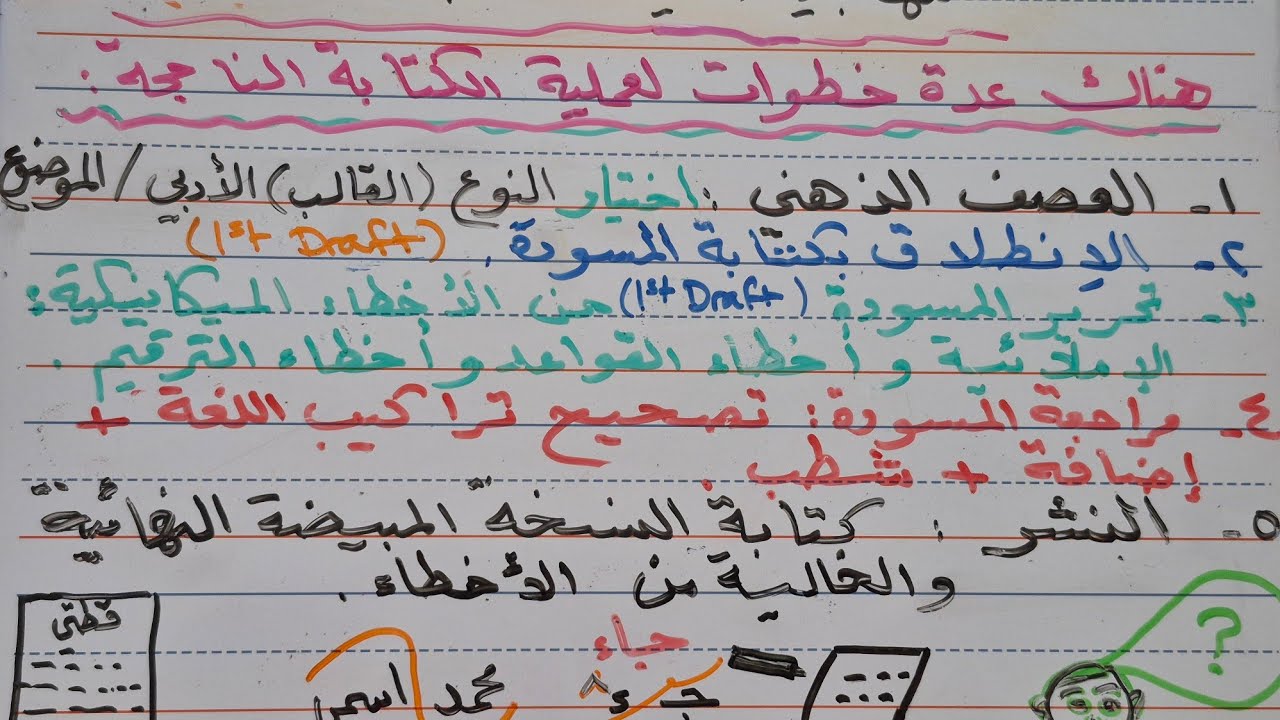 هناك عدة خطوات لعملية الكتابة الناجحة:
١- العصف الذهني: اختيار النوع (القالب) الأدبي / الموضوع
٢- الإنطلاق بكتابة المسودة. (1st Draft)
٣- تحرير المسودة (1st Draft) من الأخطاء الميكانيكية:
الإملائية وأخطاء القواعد وأخطاء الترقيم.
٤- مراجعة المسودة: تصحيح تراكيب اللغة +
إضافة + شطب.
٥- النشر: كتابة النسخة المبيضة النهائية
والخالية من الأخطاء.
?
قطتي
جاء
محمد اسمي